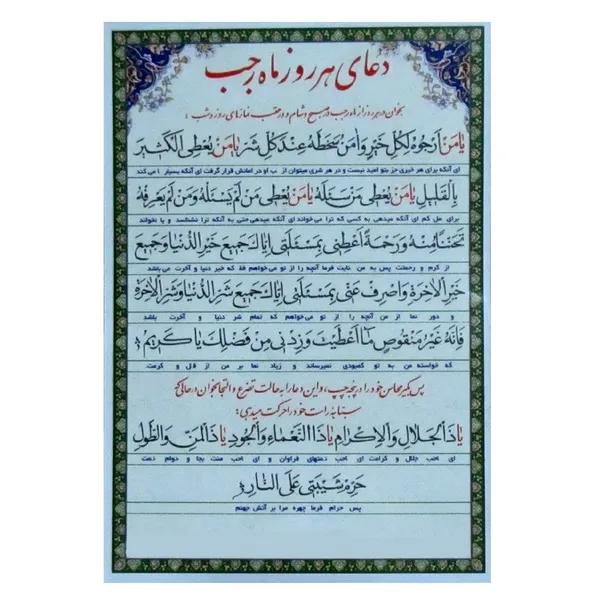 دعای هر روز ماه رجب
بخوان در هر روز از ماه رجب در صبح و شام و در عقب نمازهای روز و شب :
یا مَنْ اَرْجُوهُ لِكُلِّ خَیْرٍ وَ آمَنُ سَخَطَهُ عِنْدَ كُلِّ شَرٍّ یا مَنْ یُعْطِی الْكَثیرَ
ای آنکه برای هر خیری جز بتو امید نیست و در هر شری میتوان از او در امانش قرار گرفت ای آنکه بسیار عطا می کند
بِالْقَلیلِ یا مَنْ یُعْطی مَنْ سَئَلَهُ یا مَنْ یُعْطی مَنْ لَمْ یَسْئَلْهُ وَ مَنْ لَمْ یَعْرِفْهُ
برای عمل کم ای آنکه میدهی به کسی که ترا می خواند ای آنکه میدهی حتی به آنکه ترا نشناسد و یا نخواند
تَحَنُّناً مِنْهُ وَ رَحْمَةً اَعْطِنی بِمَسْئَلَتی اِیَّاكَ جَمیعَ خَیْرِ الدُّنْیا وَ جَمیعَ
از کرم و رحمتت پس به من عنایت فرما آنچه را از تو می خواهم که خیر دنیا و آخرت می باشد
خَیْرِ الْاخِرَةِ وَ اصْرِفْ عَنّی بِمَسْئَلَتی اِیَّاكَ جَمیعَ شَرِّ الدُّنْیا وَ شَرِّ الْاخِرَةِ
و دور نما از من آنچه را از تو می‌خواهم که تمام شر دنیا و آخرت باشد
فَاِنَّهُ غَیْرُ مَنْقُوصٍ ما اَعْطَیْتَ وَ زِدْنی مِنْ فَضْلِكَ یا كَریمُ
که خواسته من به تو کمبودی نمیرساند و زیاد نما بر من از فضل و کرمت
پس بگیر محاسن خود را در پنجه چپ، و این دعا را به حالت تضرع و التجا بخوان در حالی که
سبابه راست خود را حرکت میدهی:
یا ذَا الْجَلالِ وَ الْاِكْرامِ یا ذَا النَّعْماءِ وَ الْجُودِ یا ذَا الْمَنِّ وَ الطَّوْلِ
ای صاحب جلال و کرامت ای صاحب نعمتهای فراوان و ای صاحب منت بجا و دوام نعمت
حَرِّمْ شَیْبَتی عَلَی النّارِ
پس حرام فرما چهره مرا بر آتش جهنم